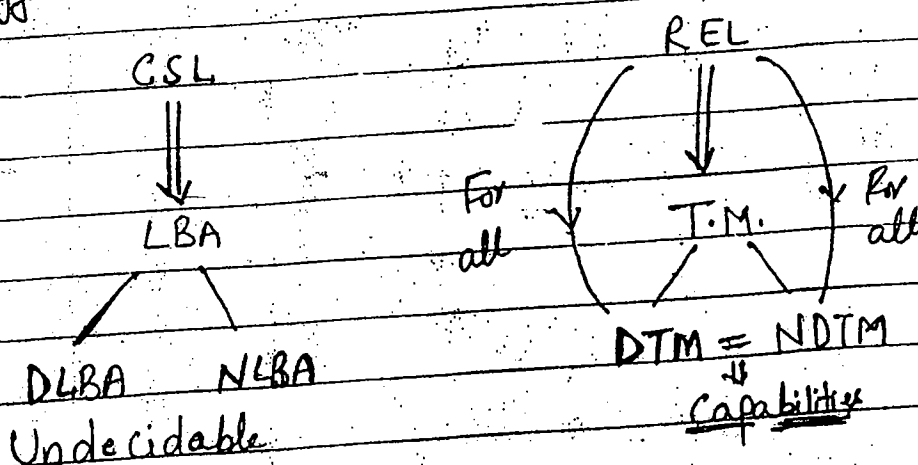 CSL
LBA
DLBA NLBA
Undecidable
REL
For all
T.M.
For all
DTM = NDTM
Capabilities